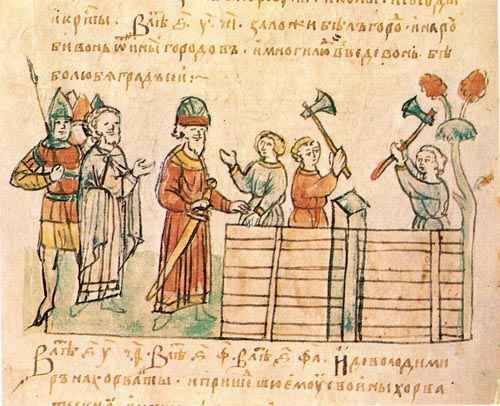 и кр҃ты. В лѣ҃ ҂ѕ у ч҃. заложи бѣлъгоро. и наро
би вонь ѿ ины городовъ. и многи лю введе вонь. бѣ
бо любѧ градъ сии :~
В лѣ҃ ҂ѕ у ч҃ѳ. В лѣ҃ ҂ѕ ф. В лѣ҃ ҂ѕ фа. Иде володими
ръ на хорваты. и пришешю емоу с воины хорва